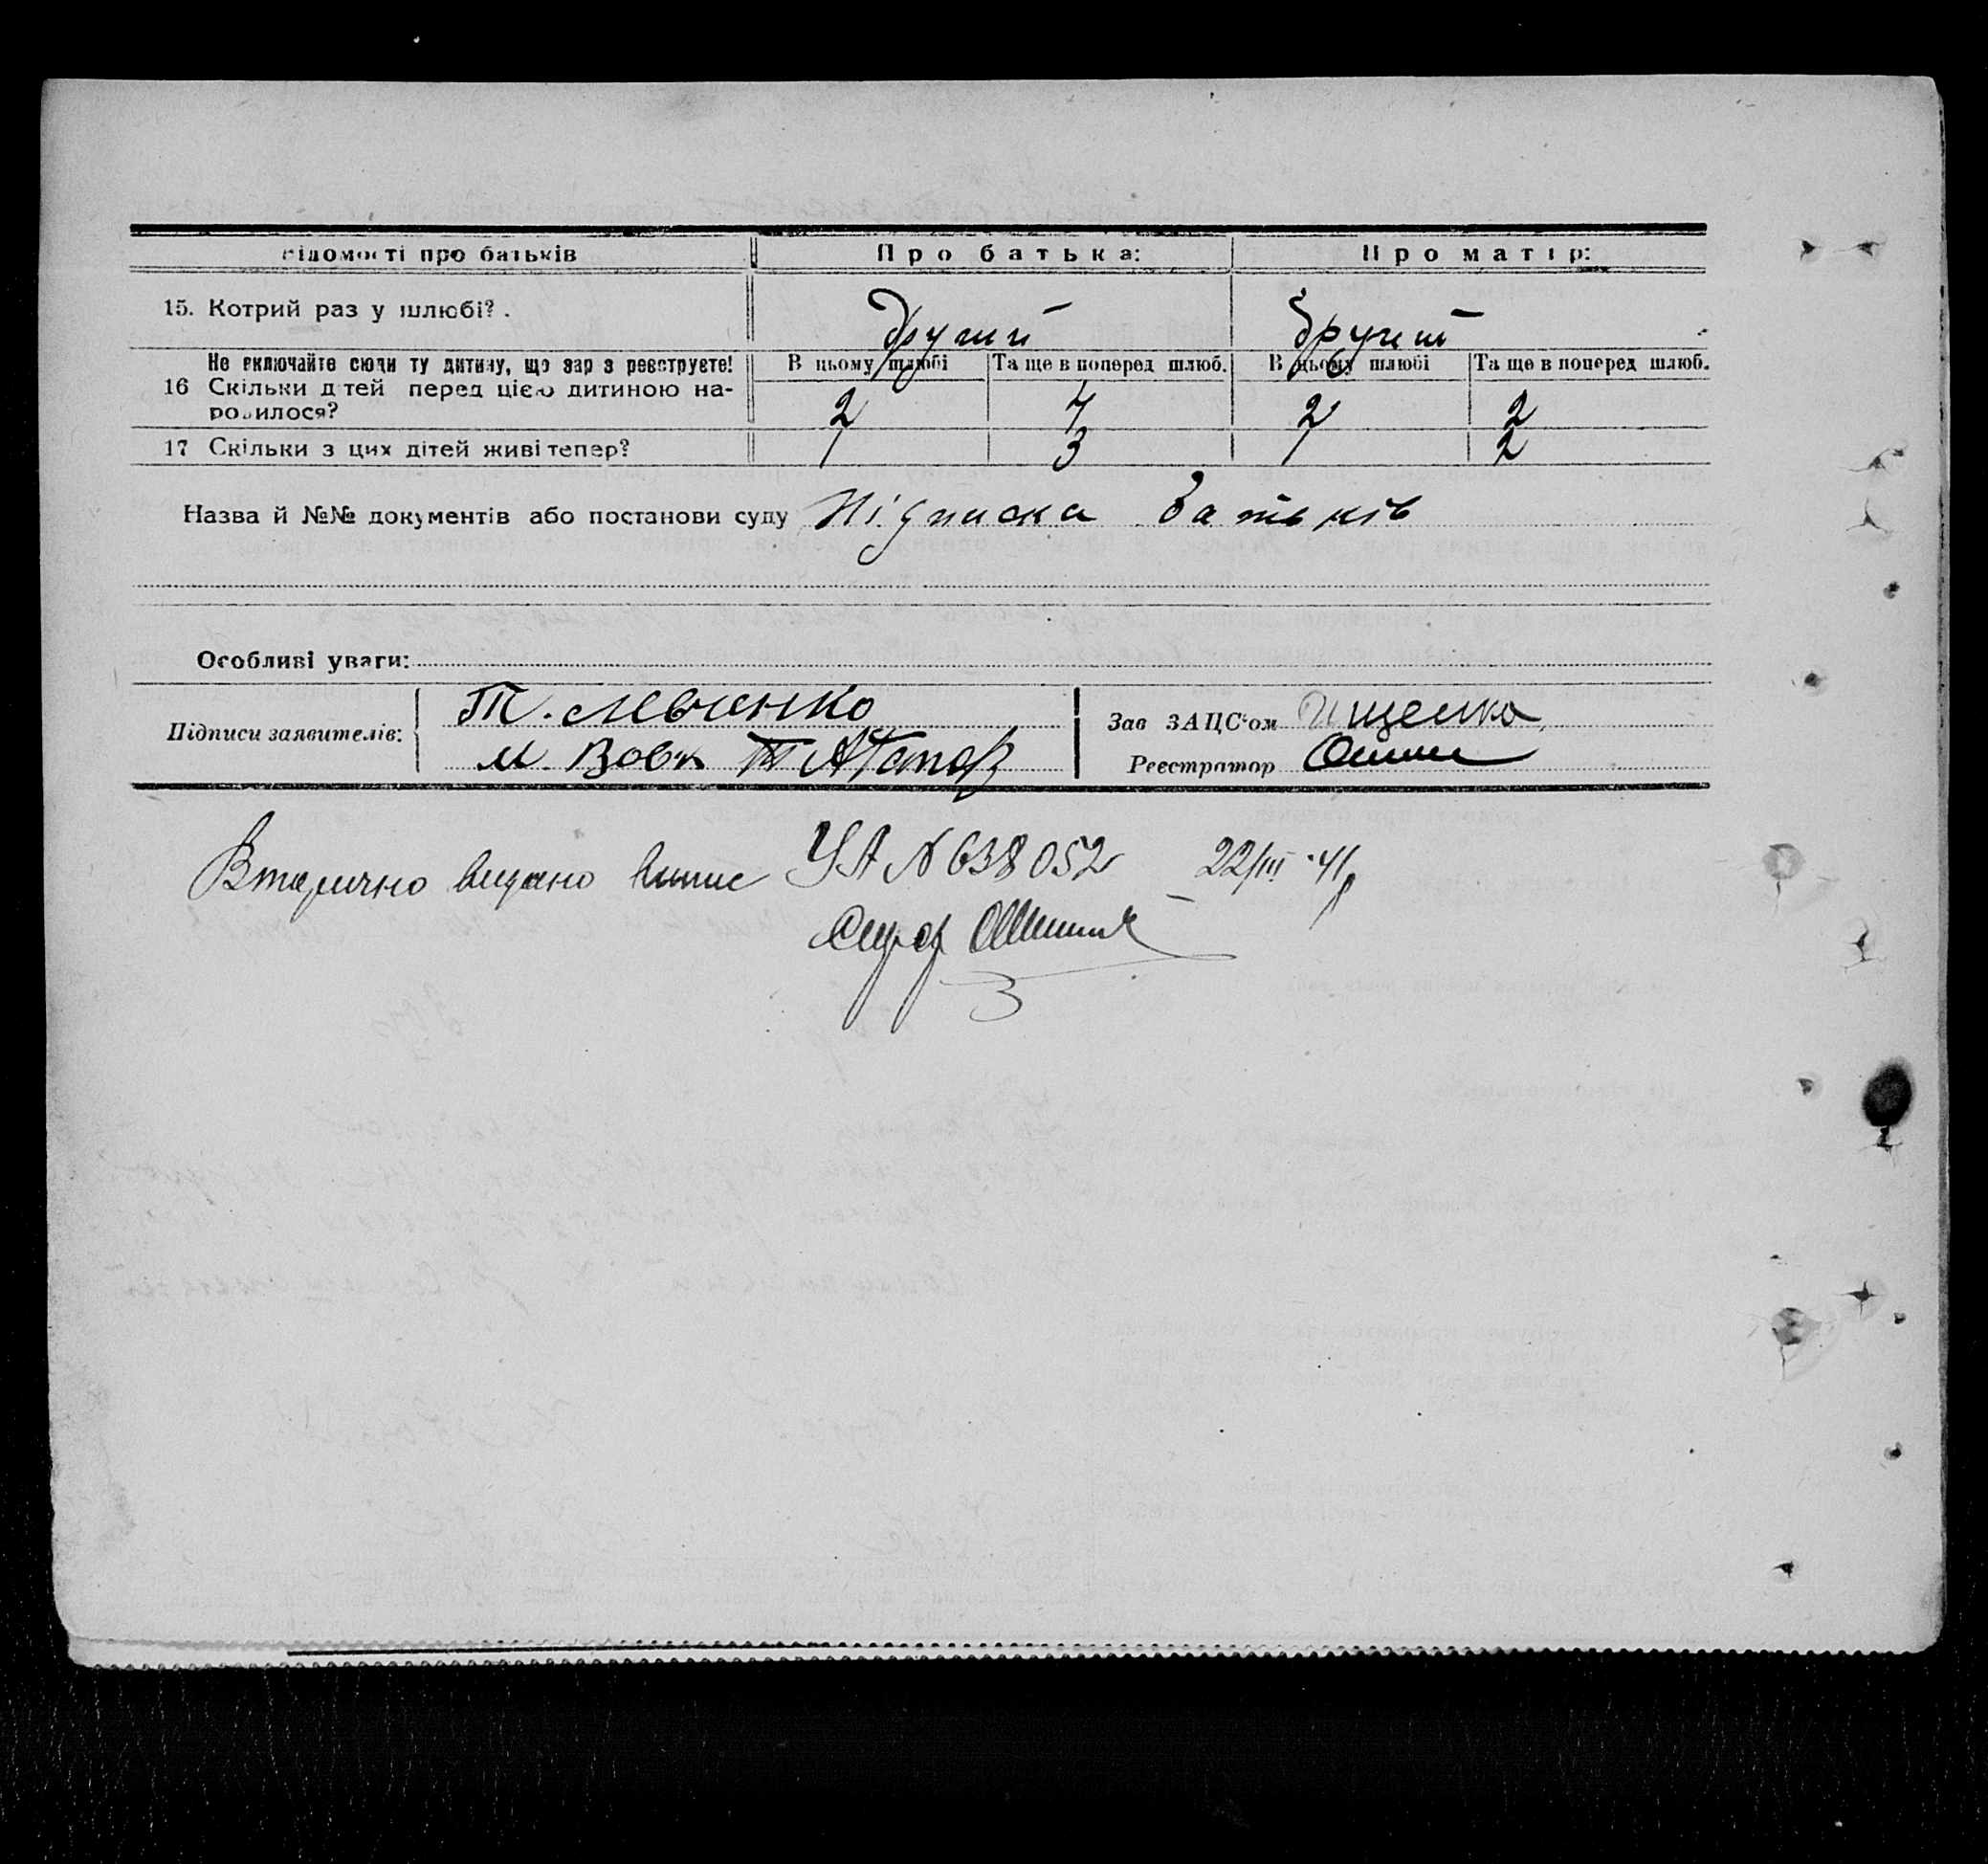 Відомості про батьків Про батька: Про матір:
15. Котрий раз у шлюбі?. Другий Другий
Не включайте сюди ту дитину, що зар з реєструєте! В цьому шлюбі Та ще в поперед шлюб. В цьому шлюбі Та ще в поперед шлюб.
16 Скільки дітей перед цією дитиною на-
родилося? 2 7 2 2
17 Скільки з цих дітей живі тепер? 1 3 1 2
Назва й №№ документів або постанови суду Підписка батьків
Особливі уваги:
Підписи заявителів: Т. Левченко
М. Вовк
Зав ЗАЦС'ом Іщенко
Реєстратор
Вторично видано випис УА N 638052 22/III 41р